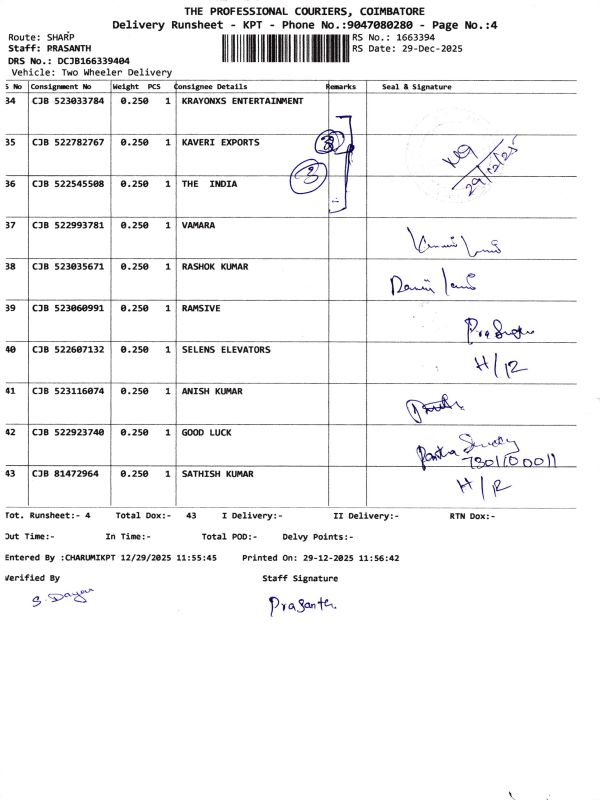 THE PROFESSIONAL COURIERS, COIMBATORE
Delivery Runsheet - KPT - Phone No.:9047080280 - Page No.:4
Route: SHARP RS No.: 1663394
Staff: PRASANTH RS Date: 29-Dec-2025
DRS No.: DCJB166339404
Vehicle: Two Wheeler Delivery
S No Consignment No Weight PCS Consignee Details Remarks Seal & Signature
34 CJB 523033784 0.250 1 KRAYONXS ENTERTAINMENT
35 CJB 522782767 0.250 1 KAVERI EXPORTS 29/12/25
36 CJB 522545508 0.250 1 THE INDIA 3
37 CJB 522993781 0.250 1 VAMARA
38 CJB 523035671 0.250 1 RASHOK KUMAR
39 CJB 523060991 0.250 1 RAMSIVE
40 CJB 522607132 0.250 1 SELENS ELEVATORS H/R
41 CJB 523116074 0.250 1 ANISH KUMAR
42 CJB 522923740 0.250 1 GOOD LUCK
43 CJB 81472964 0.250 1 SATHISH KUMAR H/R
Tot. Runsheet:- 4 Total Dox:- 43 I Delivery:- II Delivery:- RTN Dox:-
Out Time:- In Time:- Total POD:- Delvy Points:-
Entered By :CHARUMIKPT 12/29/2025 11:55:45 Printed On: 29-12-2025 11:56:42
Verified By Staff Signature
Prasanth.